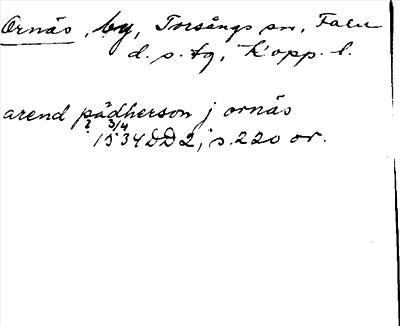 Ornäs, by, Torsångs sn, Falu
d. s. tg, Kopp. l.
arend pädherson j ornäs
? 3/4
1534 DD 2, s. 220 or.